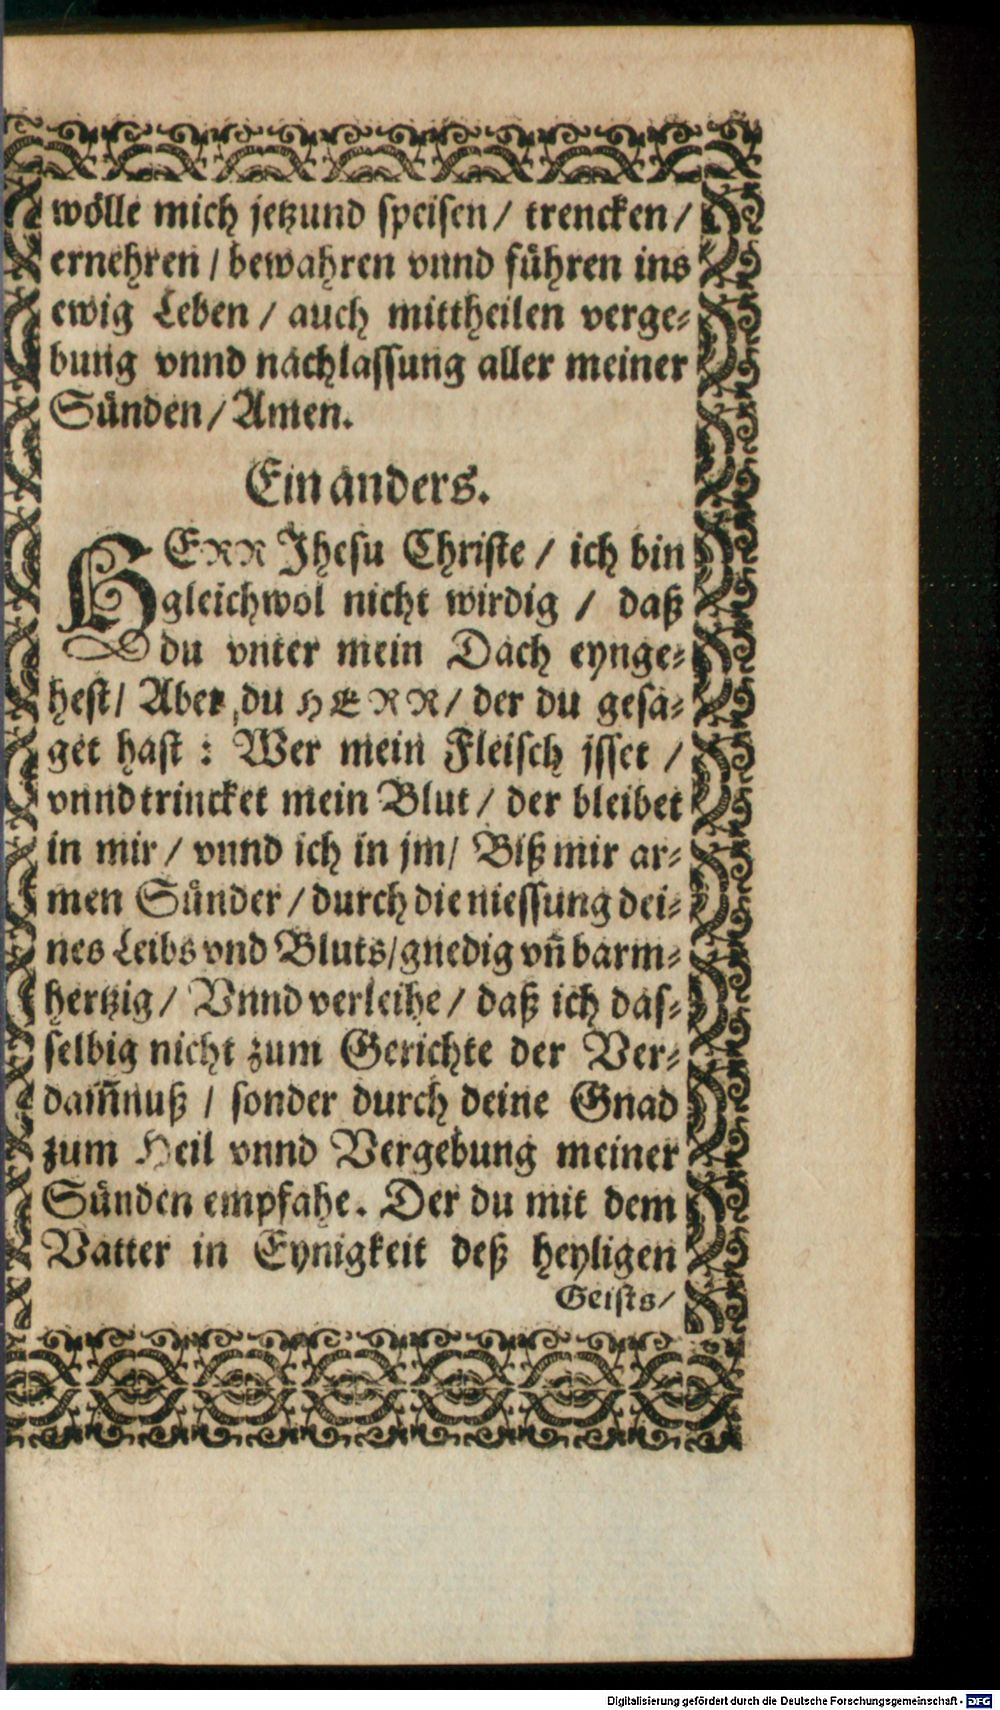 wölle mich jetzund speisen / trencken /
ernehren / bewahren vnnd führen ins
ewig Leben / auch mittheilen verge⸗
bung vnnd nachlassung aller meiner
Sünden / Amen.
Ein anders.
HERR Jhesu Christe / ich bin
gleichwol nicht wirdig / daß
du vnter mein Dach eynge⸗
hest / Aber du HERR / der du gesa⸗
get hast : Wer mein Fleisch jsset /
vnnd trincket mein Blut / der bleibet
in mir / vnnd ich in jm / Biß mir ar⸗
men Sünder / durch die niessung dei⸗
nes Leibs vnd Bluts / gnedig vñ barm⸗
hertzig / Vnnd verleihe / daß ich das⸗
selbig nicht zum Gerichte der Ver⸗
dam̃nuß / sonder durch deine Gnad
zum Heil vnnd Vergebung meiner
Sünden empfahe. Der du mit dem
Vatter in Eynigkeit deß heyligen
Geists /
Digitalisierung gefördert durch die Deutsche Forschungsgemeinschaft - DFG